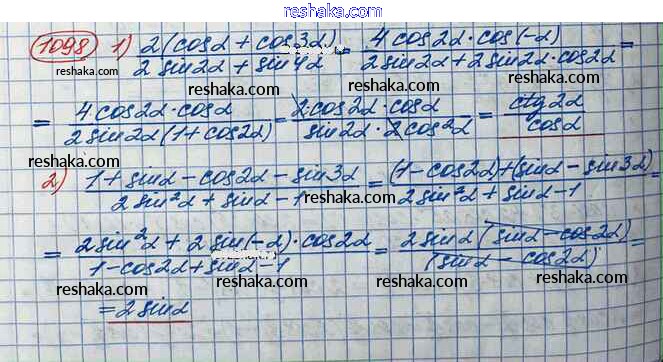 reshaka.com
1098 1) 2(cosα + cos3α) / 2sin2α + sin4α = 4cos2α·cos(-α) / 2sin2α + 2sin2α·cos2α =
reshaka.com reshaka.com
= 4cos2α·cosα / 2sin2α(1+cos2α) = 2cos2α·cosα / sin2α·2cos²α = ctg2α / cosα
reshaka.com reshaka.com reshaka.com
2) 1+sinα-cos2α-sin3α / 2sin²α+sinα-1 = (1-cos2α)+(sinα-sin3α) / 2sin²α+sinα-1 =
reshaka.com reshaka.com
= 2sin²α+2sin(-α)·cos2α / 1-cos2α+sinα-1 = 2sinα(sinα-cos2α) / (sinα-cos2α) =
reshaka.com reshaka.com reshaka.com
= 2sinα
reshaka.com reshaka.com